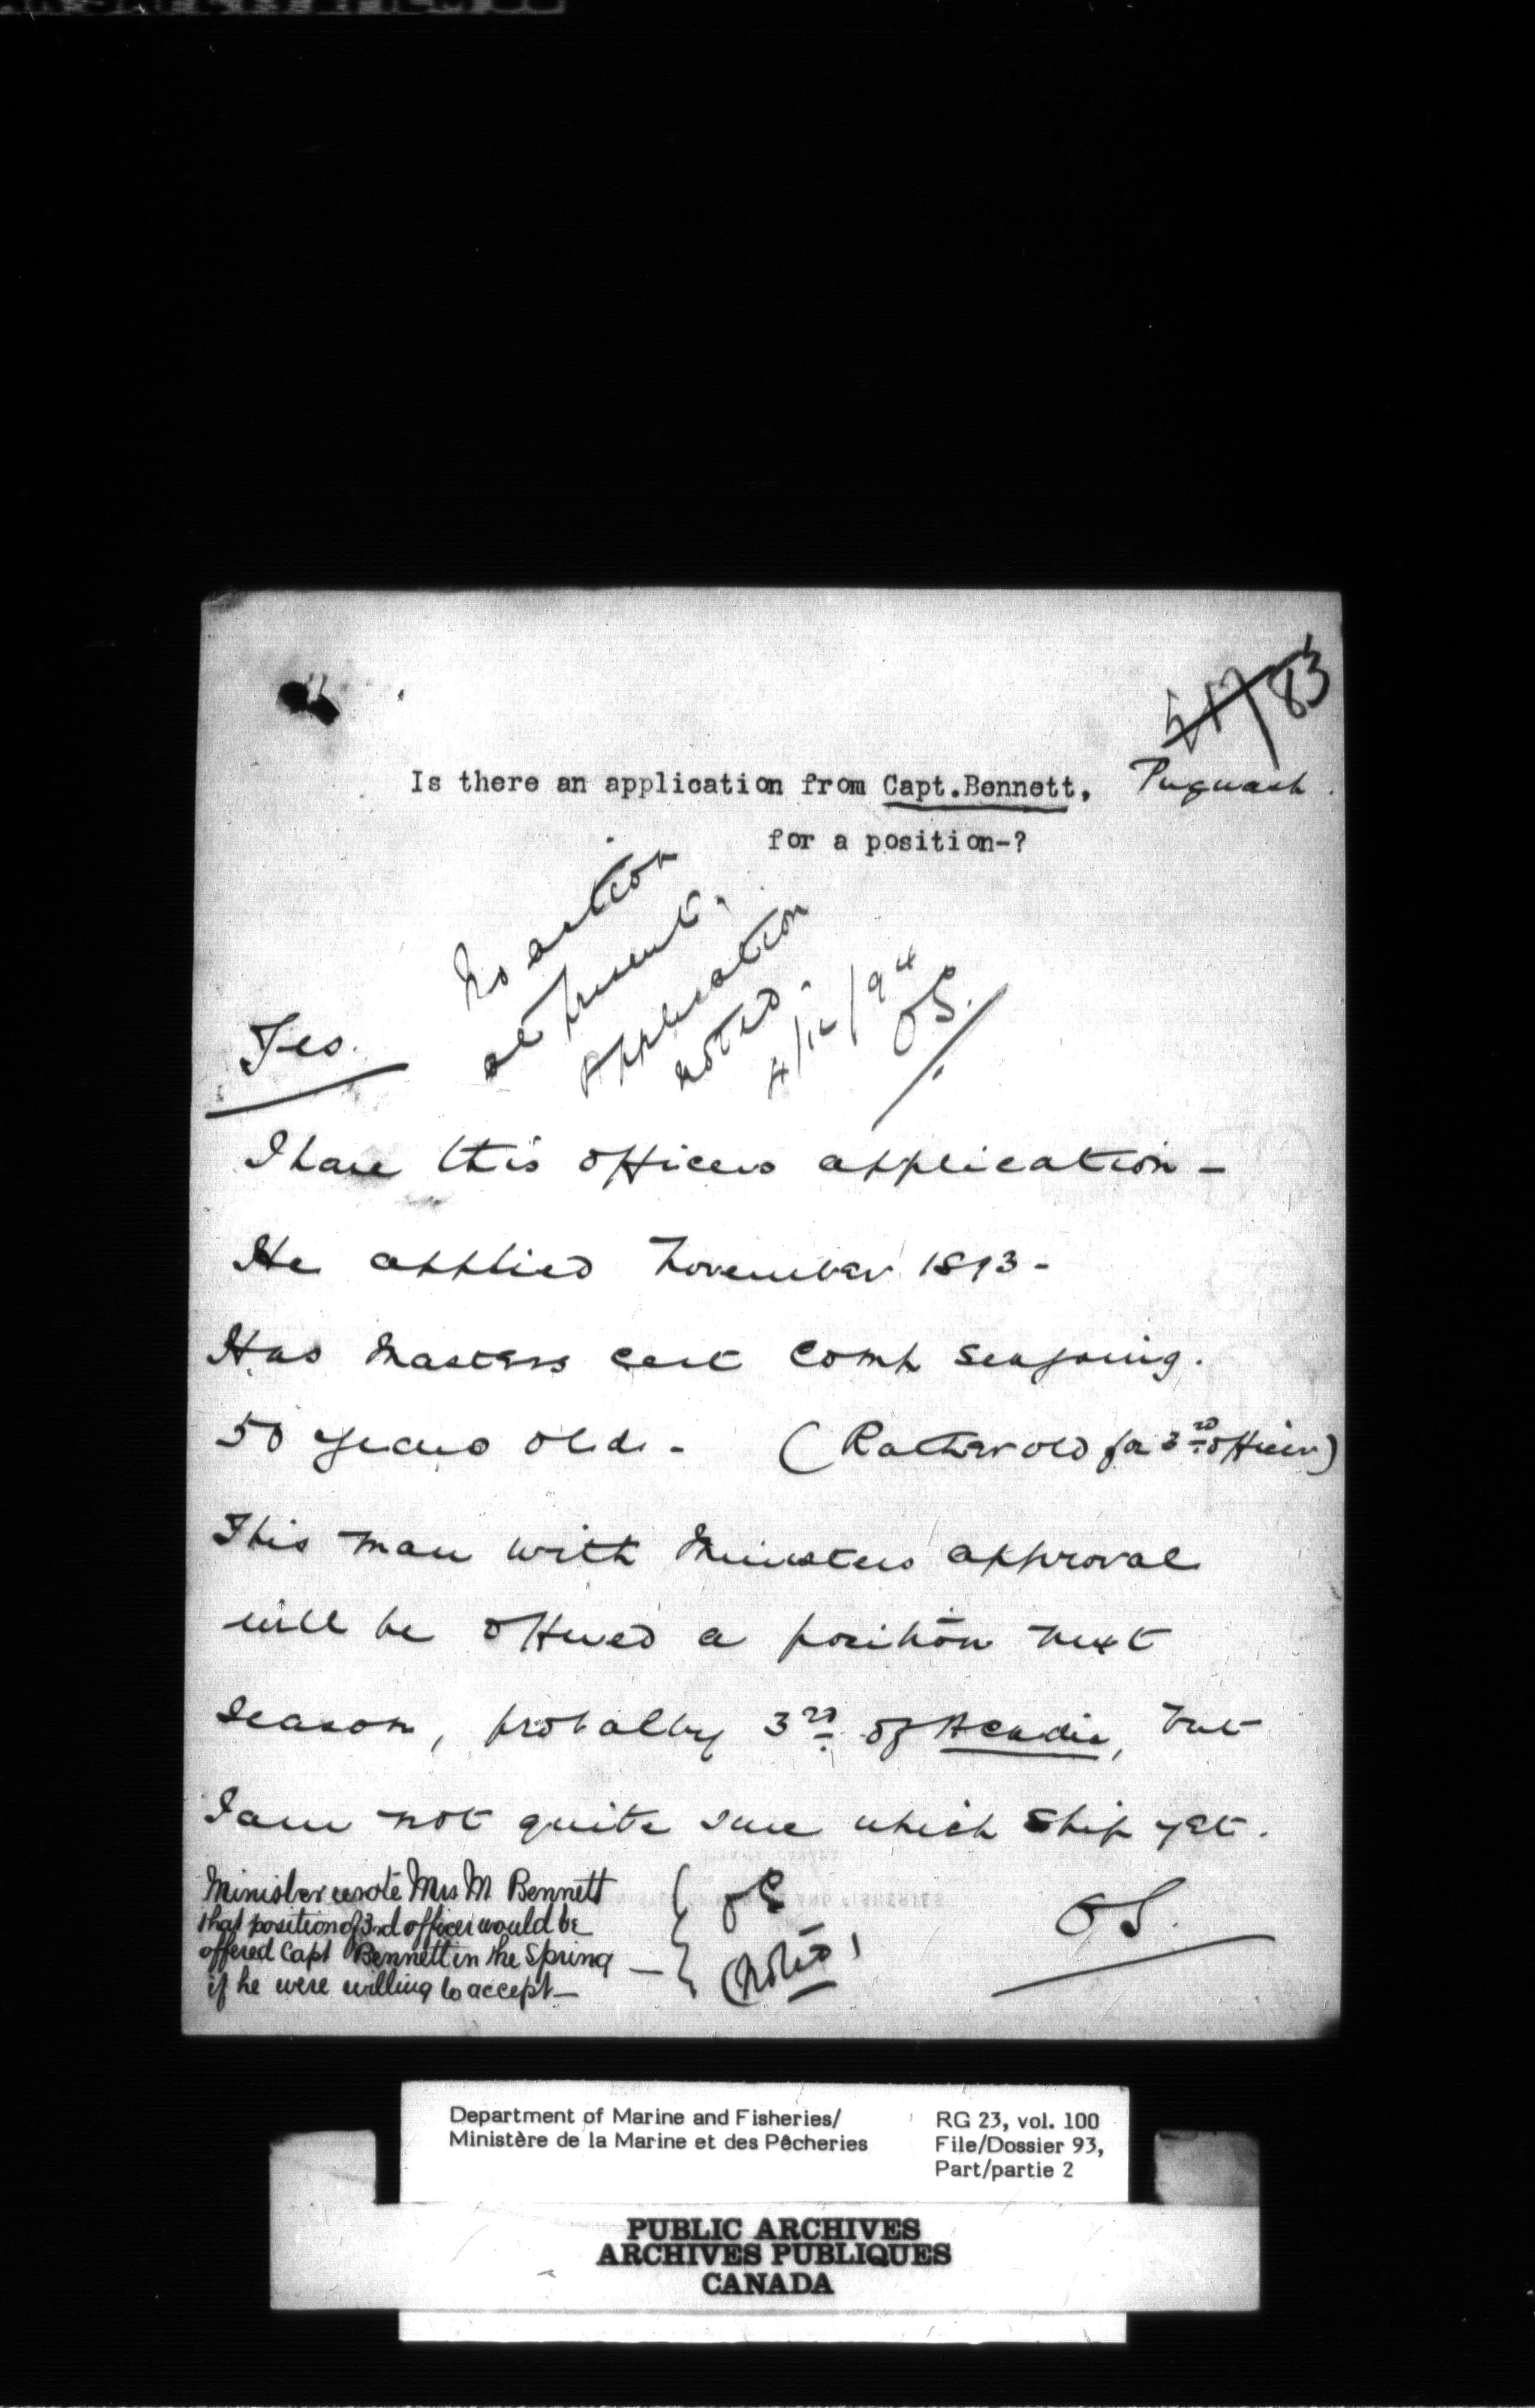 83
Is there an application from Capt.Bennett, Pugwash.
for a position-?
No action
at present.
Application
noted.
4/12/94
OS.
Yes.
I have this officers application -
He applied November 1893 -
Has Masters cert comp seagoing.
50 years old. - (Rather old for 3rd officer)
This man with Ministers approval
will be offered a position next
season, probably 3rd of Acadia, but
I am not quite sure which ship yet.
Minister wrote Mrs M Bennett
that position of 3rd officer would be
offered Capt Bennett in the Spring
if he were willing to accept—
OS
(Noted)
OS.
Department of Marine and Fisheries/
Ministère de la Marine et des Pêcheries
RG 23, vol. 100
File/Dossier 93,
Part/partie 2
PUBLIC ARCHIVES
ARCHIVES PUBLIQUES
CANADA